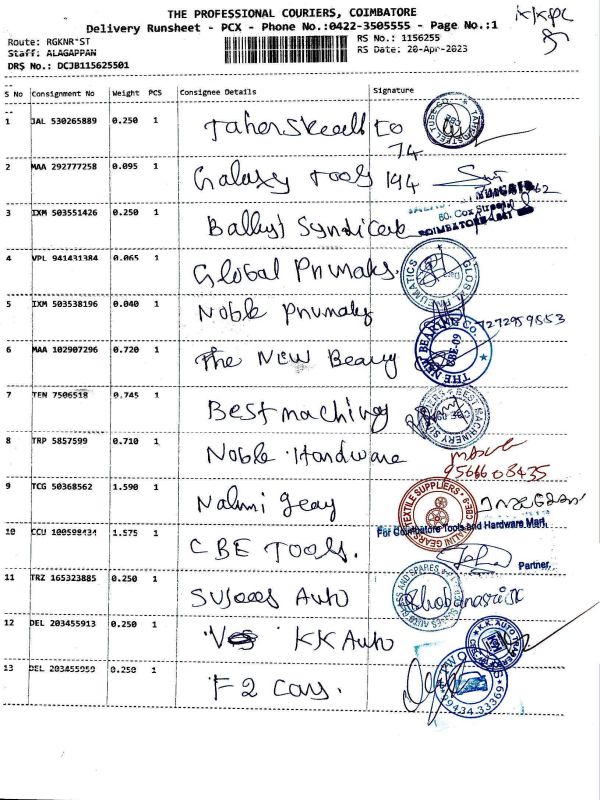 THE PROFESSIONAL COURIERS, COIMBATORE
Delivery Runsheet - PCX - Phone No.:0422-3505555 - Page No.:1
Route: RGKNR ST
Staff: ALAGAPPAN
DRS No.: DCJB115625501
RS No.: 1156255
RS Date: 20-Apr-2023
S No Consignment No Weight PCS Consignee Details Signature
1 JAL 530265889 0.250 1 Co
74
2 MAA 292777258 0.095 1 Galaxy Tools 194
3 IXM 503551426 0.250 1
80. Cox Street
4 VPL 941431384 0.065 1 Global
GLOBAL PNEUMATICS
5 IXM 503538196 0.040 1 Noble
7272959853
6 MAA 102907296 0.720 1 The New
THE NEW BEARING CO. CBE-09
7 TEN 7506518 0.745 1 Best maching
BEST MACHINERY
8 TRP 5857599 0.710 1 Noble Hardware
9566608435
9 TCG 50368562 1.590 1 gear
NALINI GEARS TEXTILE SUPPLIERS
10 CCU 100598434 1.575 1 CBE Tools.
For Coimbatore Tools and Hardware Mart,
Partner.
11 TRZ 165323885 0.250 1 Auto
AND SPARES
12 DEL 203455913 0.250 1 KK Auto
K.K. AUTO
13 DEL 203455959 0.250 1 F2 Cars.
99434 33369